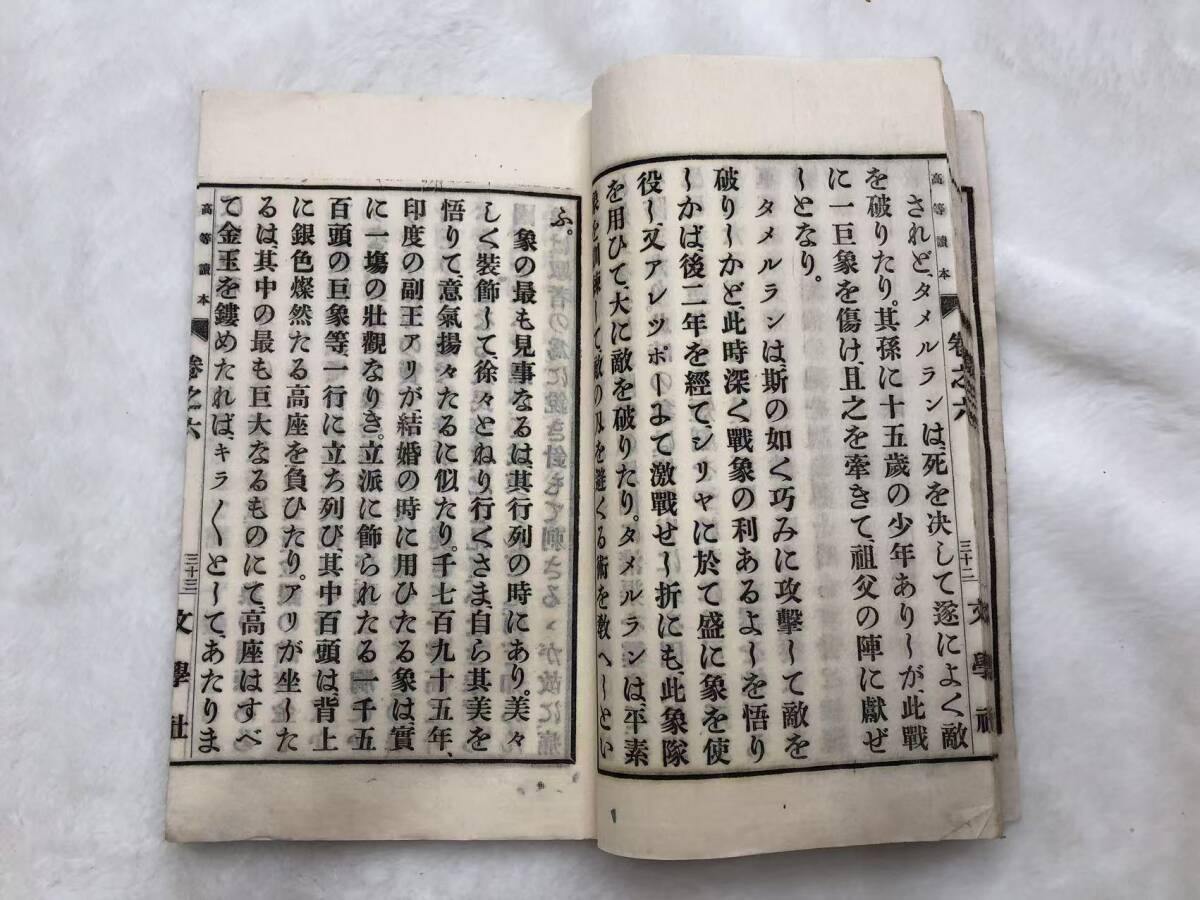 高等讀本 卷之六 三十二 文學社
されど、タメルランは、死を決して遂によく敵
を破りたり。其孫に十五歳の少年ありしが、此戰
に一巨象を傷け、且之を牽きて、祖父の陣に獻ぜ
しとなり。
タメルランは、斯の如く巧みに攻擊して敵を
破りしかど、此時深く戰象の利あるよしを悟り
しかば、後二年を經て、シリヤに於て盛に象を使
役し、又アレツポーにて激戰せし折にも、此象隊
を用ひて、大に敵を破りたり。タメルランは、平素
象を訓練して、敵の刄を避くる術を敎へしとい
ふ。
象の最も見事なるは、其行列の時にあり。美々
しく裝飾して、徐々とねり行くさま、自ら其美を
悟りて、意氣揚々たるに似たり。千七百九十五年、
印度の副王アリが結婚の時に用ひたる象は、實
に一塲の壯觀なりき。立派に飾られたる一千五
百頭の巨象等、一行に立ち列び、其中百頭は、背上
に銀色燦然たる高座を負ひたり。アリが坐した
るは、其中の最も巨大なるものにて、高座はすべ
て金玉を鏤めたれば、キラ〱として、あたりま
高等讀本 卷之六 三十三 文學社